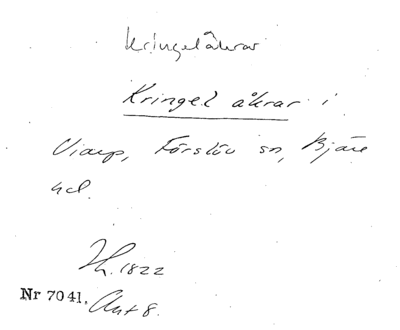 Kringelåkrar
Kringel åkrar i
Viarp, Förslöv sn, Bjäre
hd.
Th. 1822
Nr 7041. Ant 8.